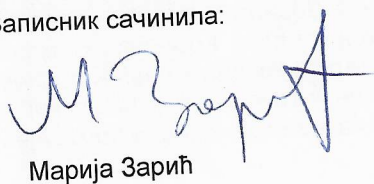 Записник сачинила:
М Зарић
Марија Зарић